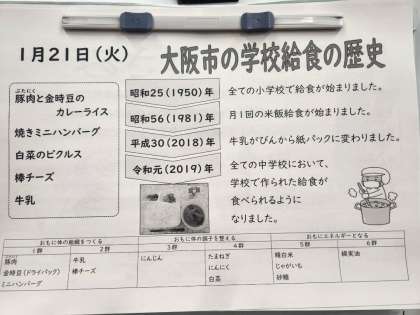 1月21日(火)
大阪市の学校給食の歴史
ぶたにく
豚肉と金時豆の
カレーライス
焼きミニハンバーグ
白菜のピクルス
棒チーズ
牛乳
昭和25(1950)年
全ての小学校で給食が始まりました。
昭和56(1981)年
月1回の米飯給食が始まりました。
平成30(2018)年
牛乳がびんから紙パックに変わりました。
令和元(2019)年
全ての中学校において、
学校で作られた給食が
食べられるように
なりました。
おもに体の組織をつくる
おもに体の調子を整える
おもにエネルギーとなる
1群 2群 3群 4群 5群 6群
豚肉 牛乳 にんじん たまねぎ 精白米 綿実油
金時豆(ドライパック) 棒チーズ にんにく じゃがいも
ミニハンバーグ 白菜 砂糖